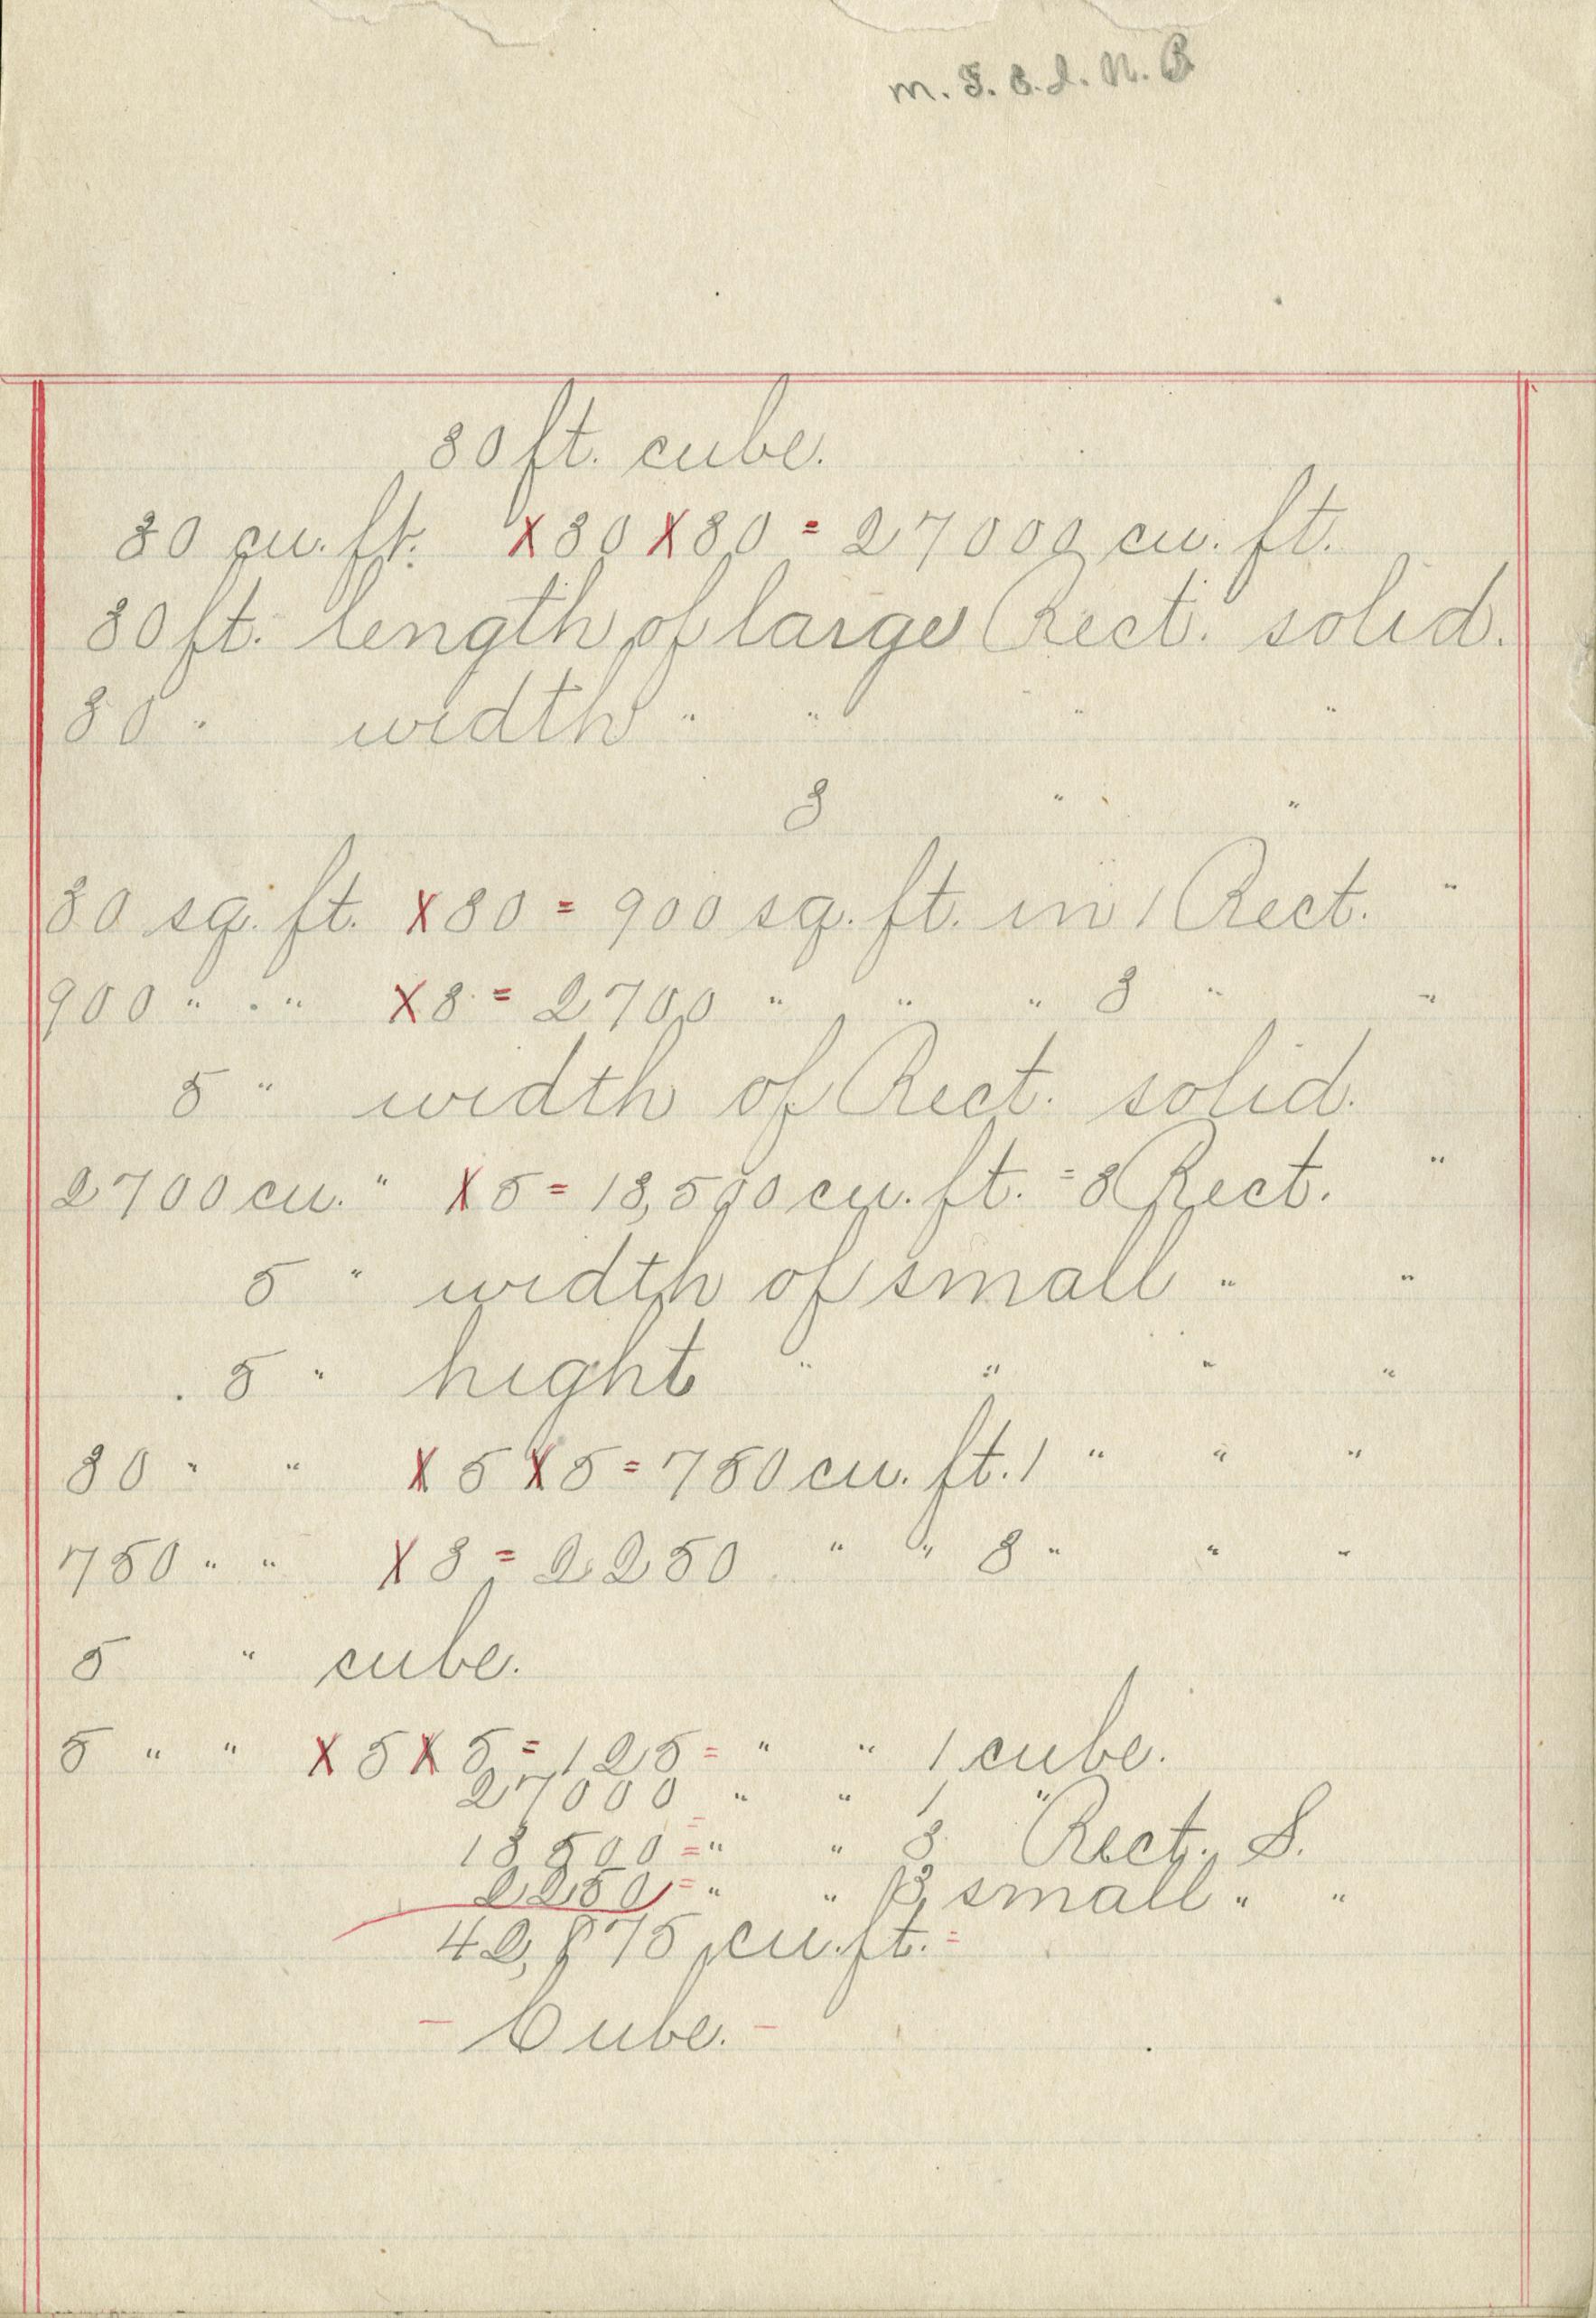 m. S. E. d. N. B
30 ft. cube.
30 cu. ft. X 30 X 30 = 27000 cu. ft.
30 ft. length of large Rect. solid.
30 " width " " " "
3 " "
30 sq. ft. X 30 = 900 sq. ft. in 1 Rect. "
900 " " X 3 = 2700 " " " 3 " "
5 " width of Rect. solid.
2700 cu. " X 5 = 13,500 cu. ft. = 3 Rect. "
5 " width of small " "
5 " hight " " " "
30 " " X 5 X 5 = 750 cu. ft. 1 " " "
750 " " X 3 = 2250 " " 3 " " "
5 " cube.
5 " " X 5 X 5 = 125 = " " 1 cube.
27000 " " 1 "
13500 = " " 3 Rect. S.
2250 = " " 3 small " "
42,875 cu. ft. =
- Cube. -